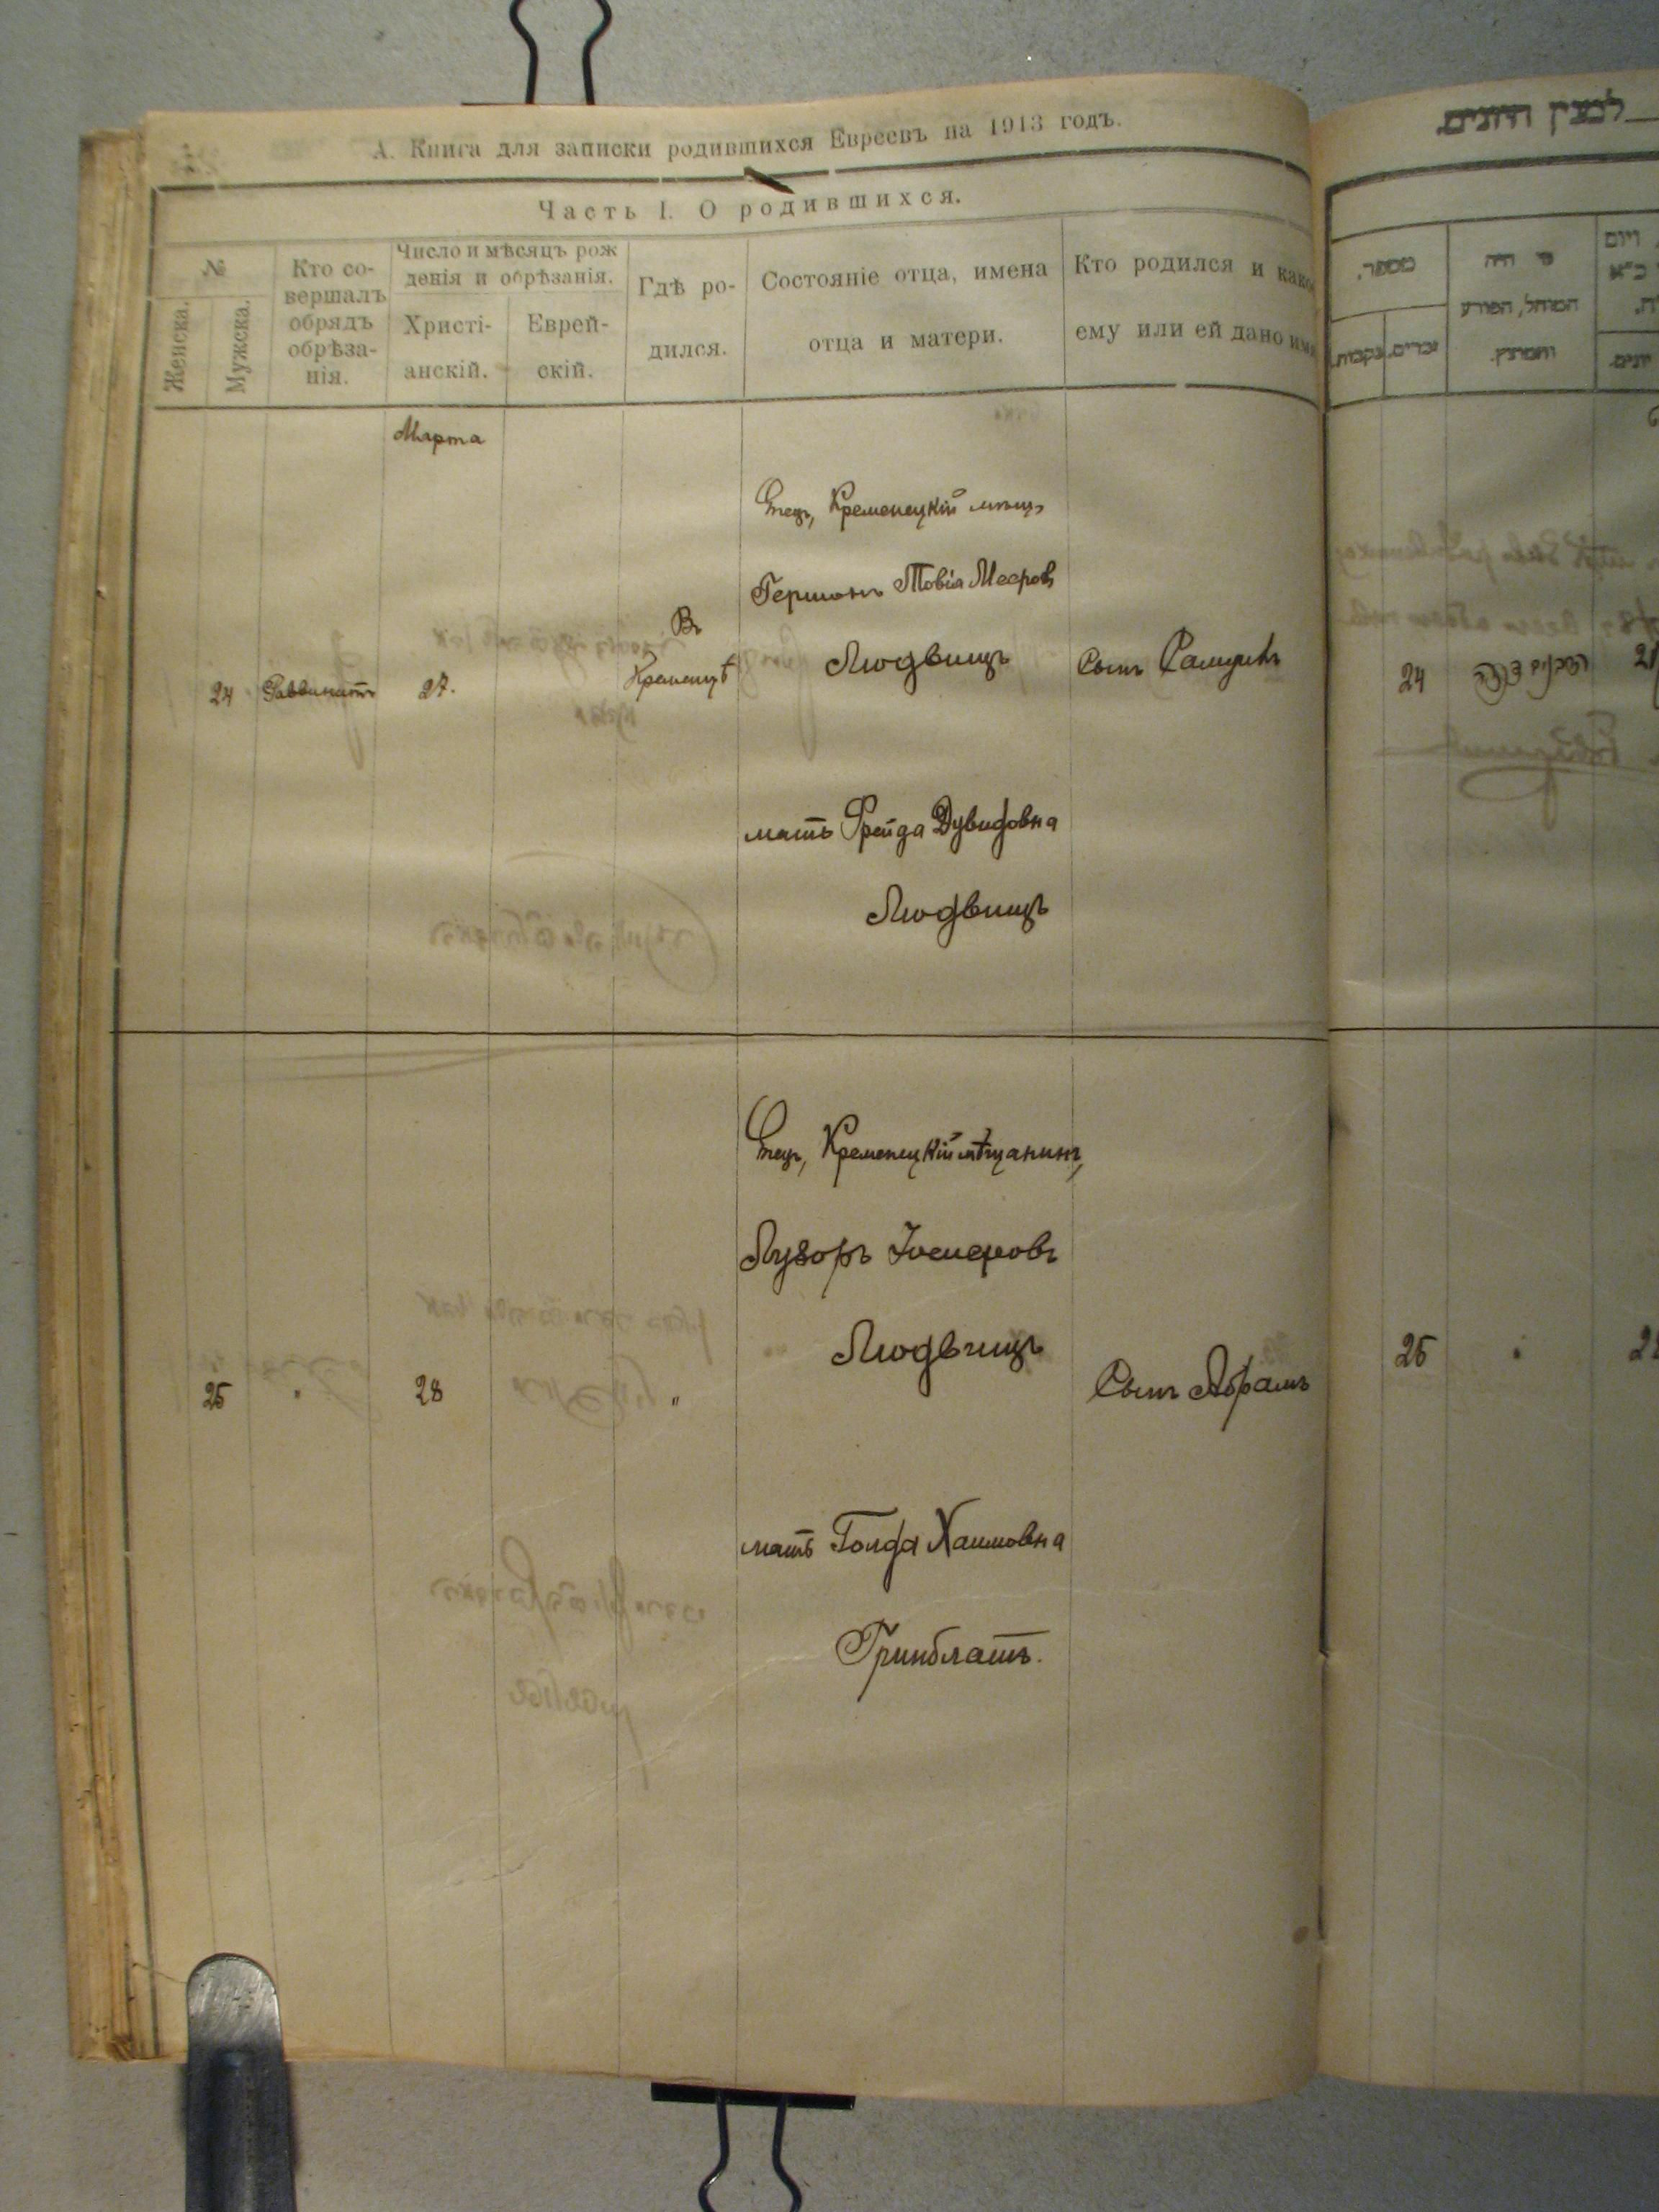 А. Книга для записки родившихся Евреевъ на 1913 годъ.
Часть I. О родившихся.
№
Женска.
Мужска.
Кто со-
вершалъ
обрядъ
обрѣза-
нія.
Число и мѣсяцъ рож
денія и обрѣзанія.
Христі-
анскій.
Еврей-
скій.
Гдѣ ро-
дился.
Состояніе отца, имена
отца и матери.
Кто родился и како
ему или ей дано имя
Марта
24
Раввинатъ
27.
Въ
Кременцѣ
Отецъ, Кременецкій мѣщ.
Гершонъ Товія Мееровъ
Людвищъ
мать Фрейда Дувидовна
Людвищъ
Сынъ
25
"
28
"
Отецъ, Кременецкій мѣщанинъ,
Лузоръ
Людвищъ
мать Голда Хаимовна
Гринблатъ.
Сынъ Абрамъ
מספר,
זכרים.
נקבות.
מי היה
המוהל, הפורע
והמוצץ.
ויום
24
25